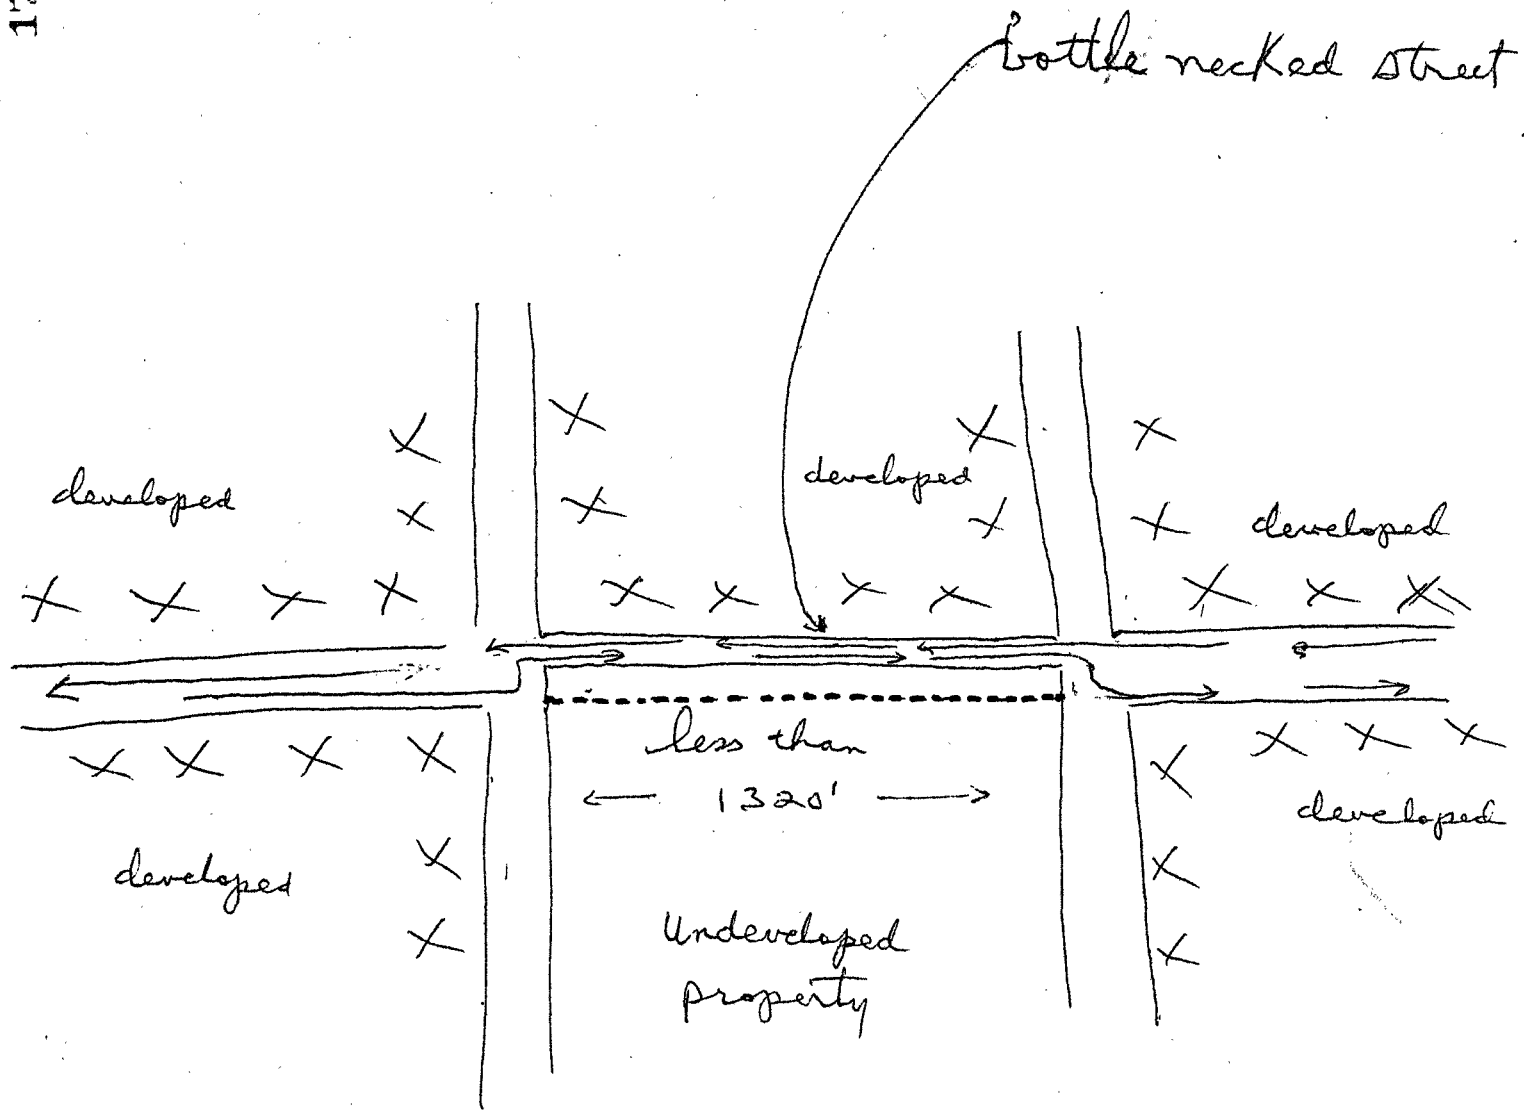 bottle necked street
developed
developed
developed
less than
1320'
developed
developed
Undeveloped
property